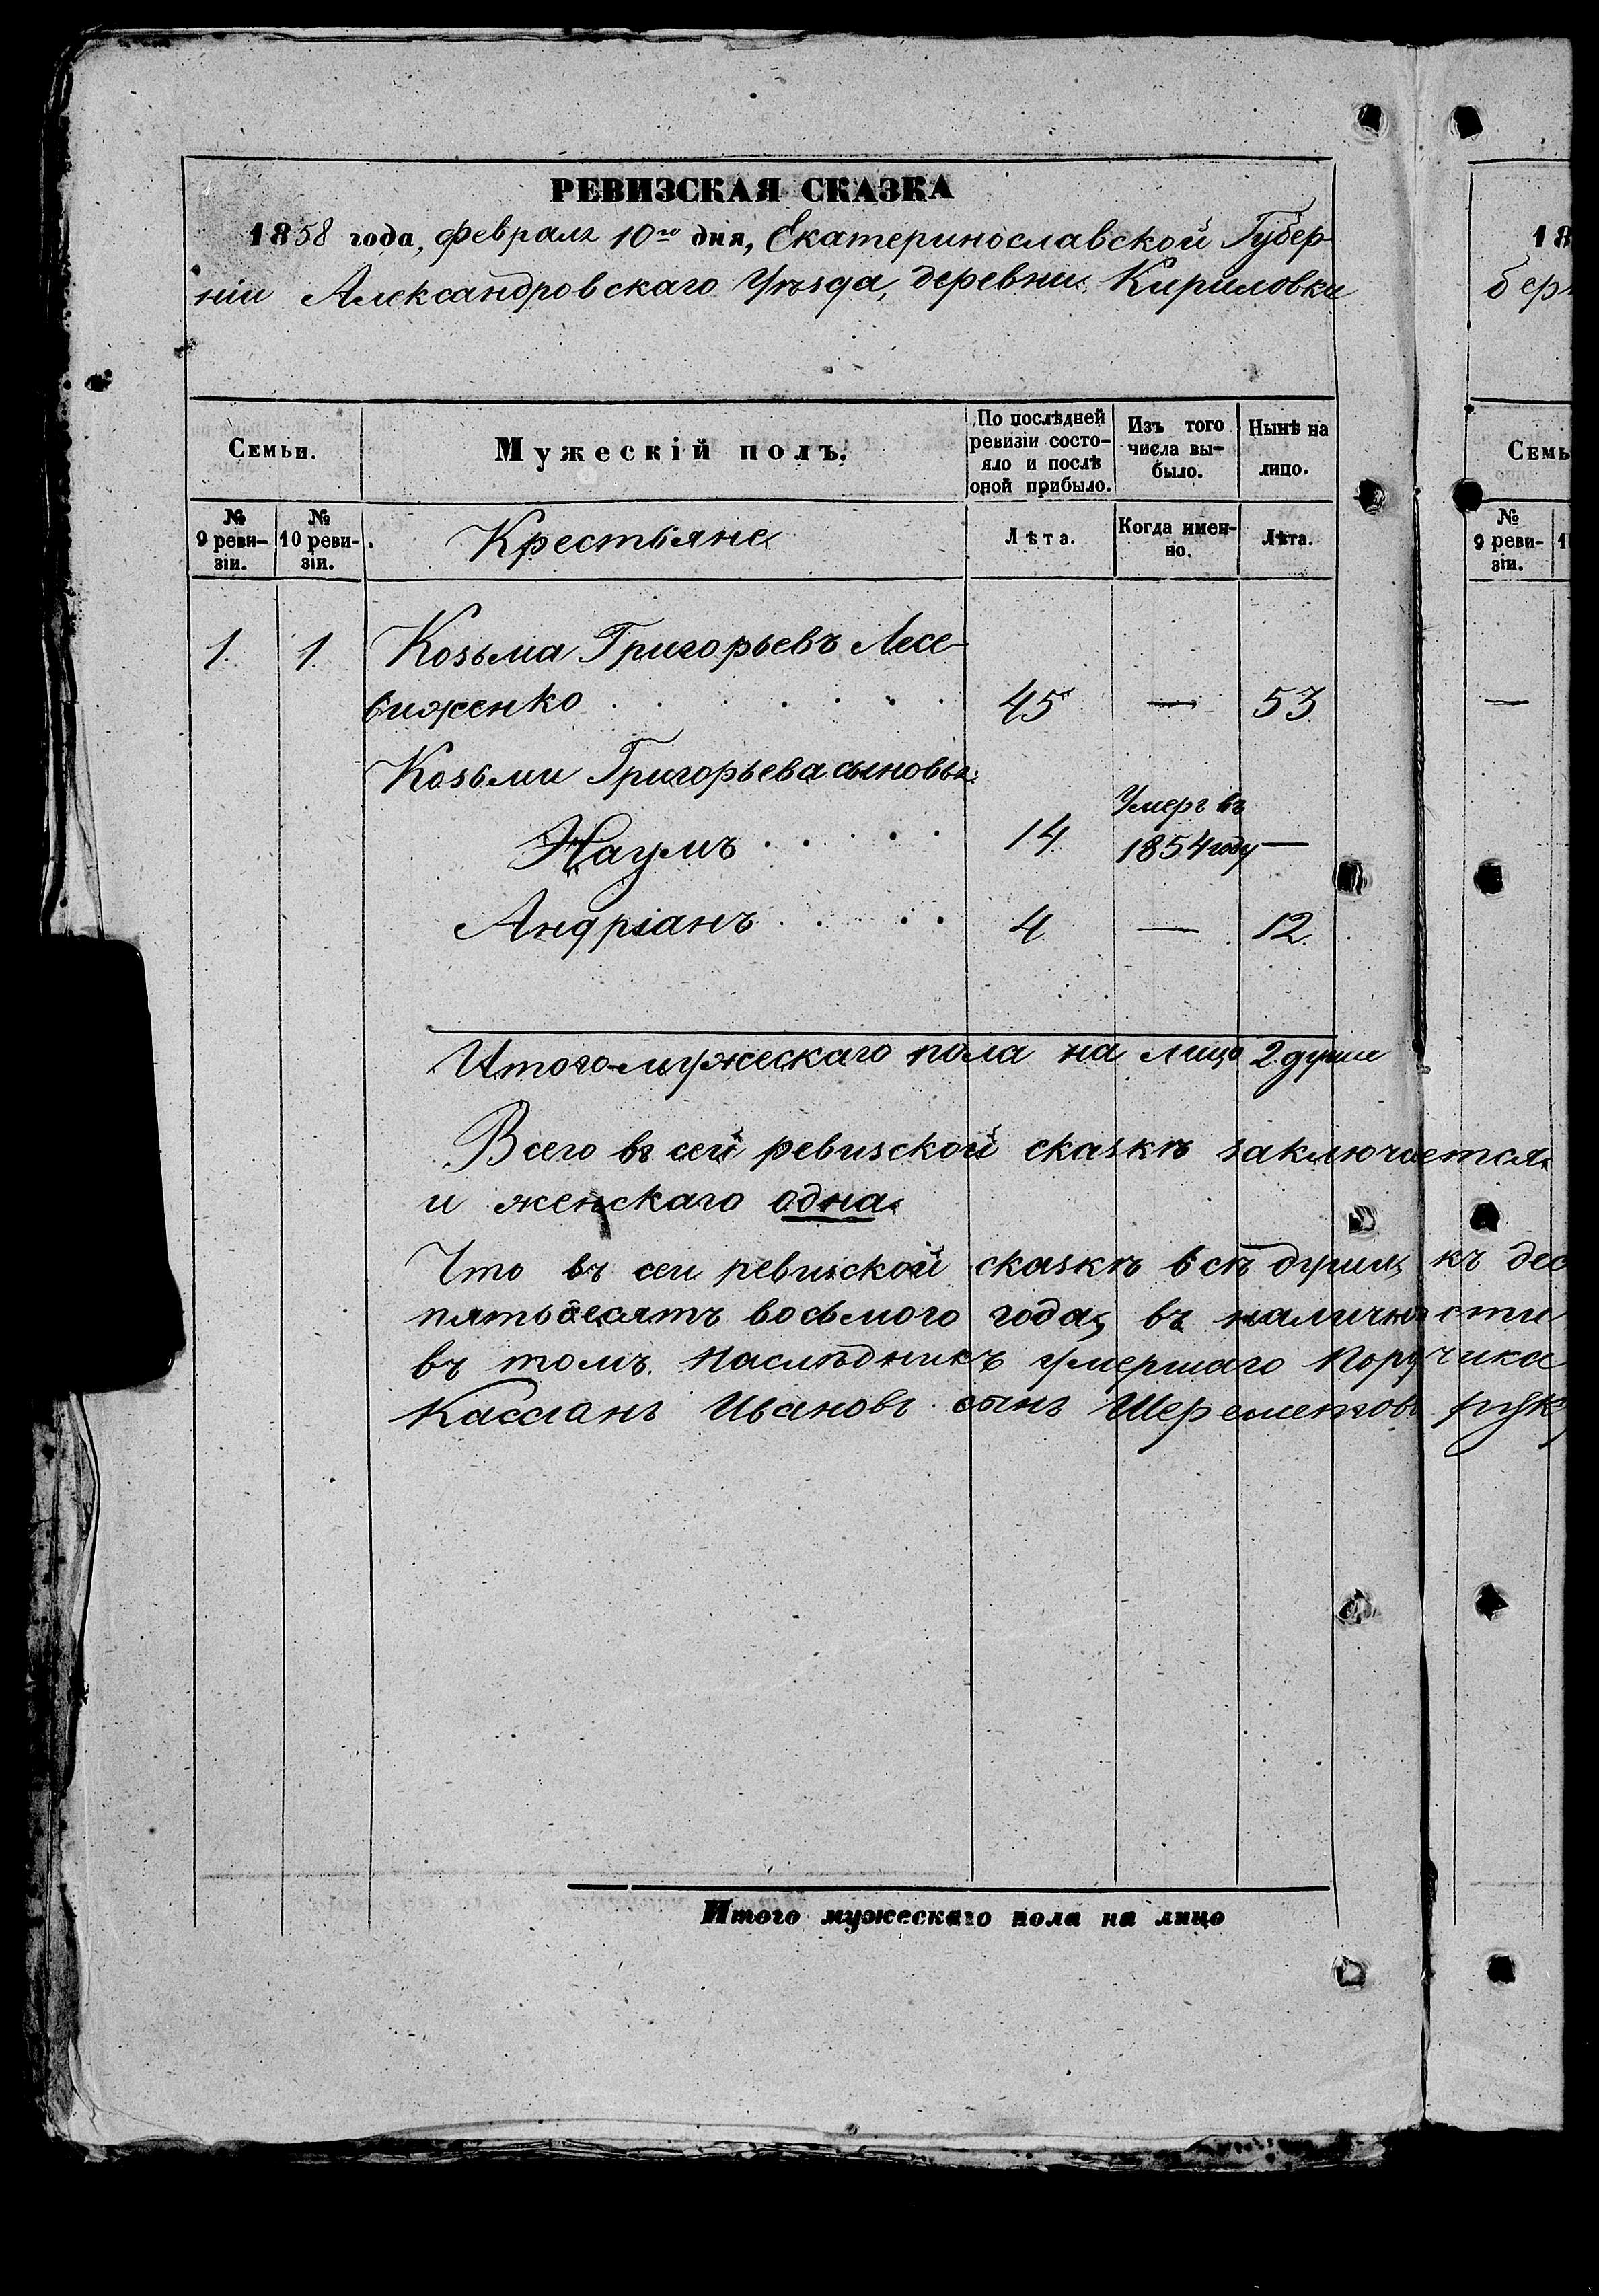 РЕВИЗСКАЯ СКАЗКА
1858 года, февраля 10го дня, Екатеринославской Губер-
ніи Александровскаго Уѣзда, деревни Кириловки
Семьи.
Мужескій полъ.
По послѣдней ревизіи состо-
яло и послѣ оной прибыло.
Изъ того числа вы-
было.
Нынѣ на лицо.
№ 9 реви-
зіи.
№ 10 реви-
зіи.
Крестьяне
Лѣта.
Когда имен-
но.
Лѣта.
1. 1. Козьма Григорьевъ Лесе-
виженко . . . . . . . 45 — 53
Козьми Григорьева сыновья:
Наумъ . . . . . 14 Умеръ въ
1854 году —
Андріанъ . . . . . 4 — 12
Итого мужескаго пола на лицо 2 души
Всего въ сей ревизской сказкѣ заключается
и женскаго одна.
Что въ сей ревизской сказкѣ всѣ души, къ дес
пятьдесятъ восьмого года, въ наличности
въ томъ наслѣдникъ умершаго Поручика
Кассіанъ Ивановъ сынъ Шереметовъ руку
Итого мужескаго пола на лицо
18
бер
Семь
№
9 реви-
зіи.
—